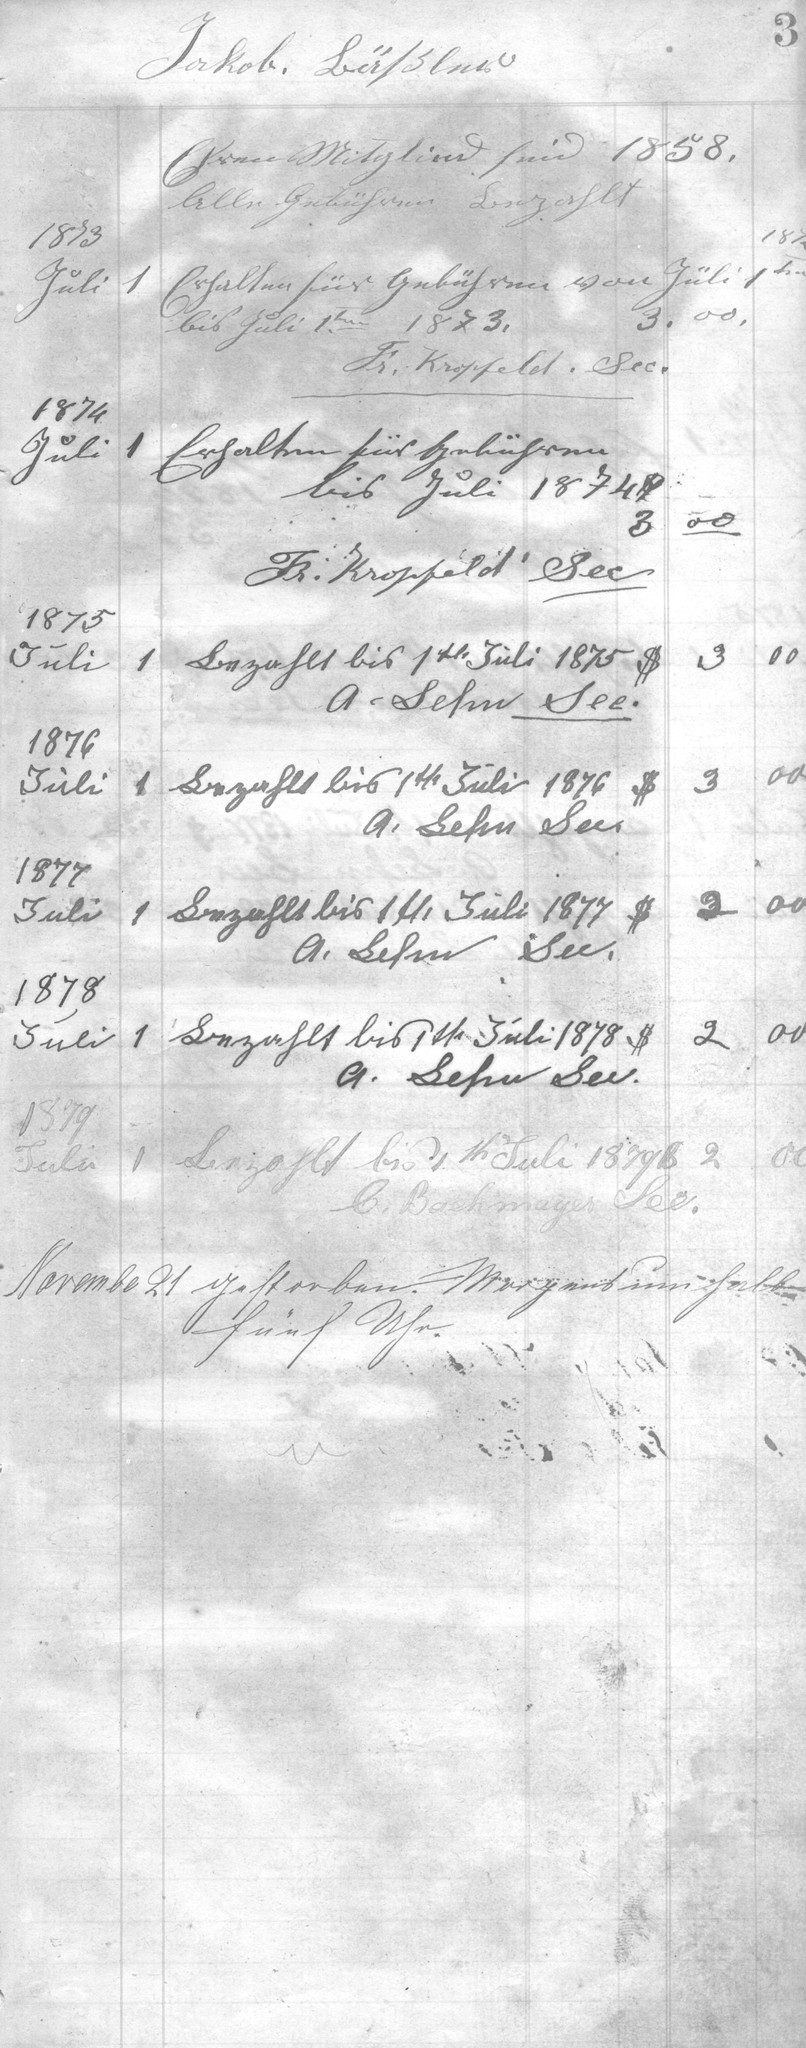 3
Jakob. Bäßler
Ehren Mitglied seid 1858.
Alle Gebühren Bezahlt
1873
Juli 1 Erhalten für Gebühren von Juli 1ten
bis Juli 1ten 1873. 3.00.
Fr. Kropfeld. Sec.
1874
Juli 1 Erhalten für Gebühren
bis Juli 1874 $
3 00
Fr. Kropfeld Sec
1875
Juli 1 Bezahlt bis 1th Juli 1875 $ 3 00
A. Lehn Sec.
1876
Juli 1 Bezahlt bis 1th Juli 1876 $ 3 00
A. Lehn Sec.
1877
Juli 1 Bezahlt bis 1th Juli 1877 $ 2 00
A. Lehn Sec.
1878
Juli 1 Bezahlt bis 1th Juli 1878 $ 2 00
A. Lehn Sec.
1879
Juli 1 Bezahlt bis 1th Juli 1879 $ 2 00
C. Bachmayer Sec.
Novembe 21 gestorben. Morgens um halb
fünf Uhr.